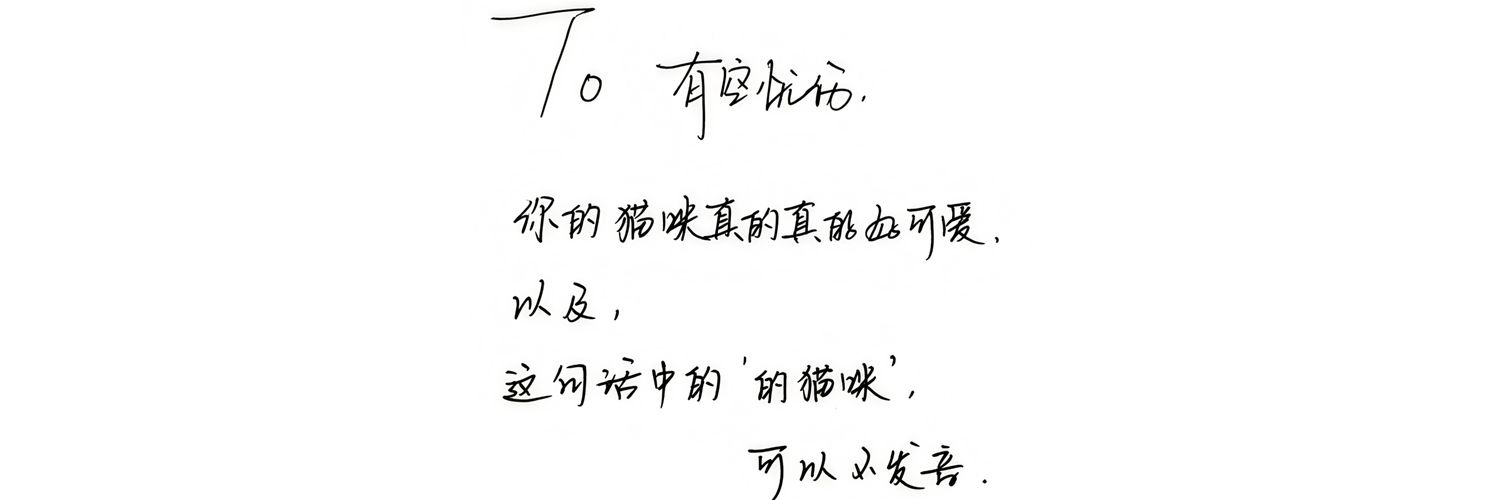 To 有空忧伤.
你的猫咪真的真的好可爱.
以及,
这句话中的‘的猫咪’,
可以不发音.